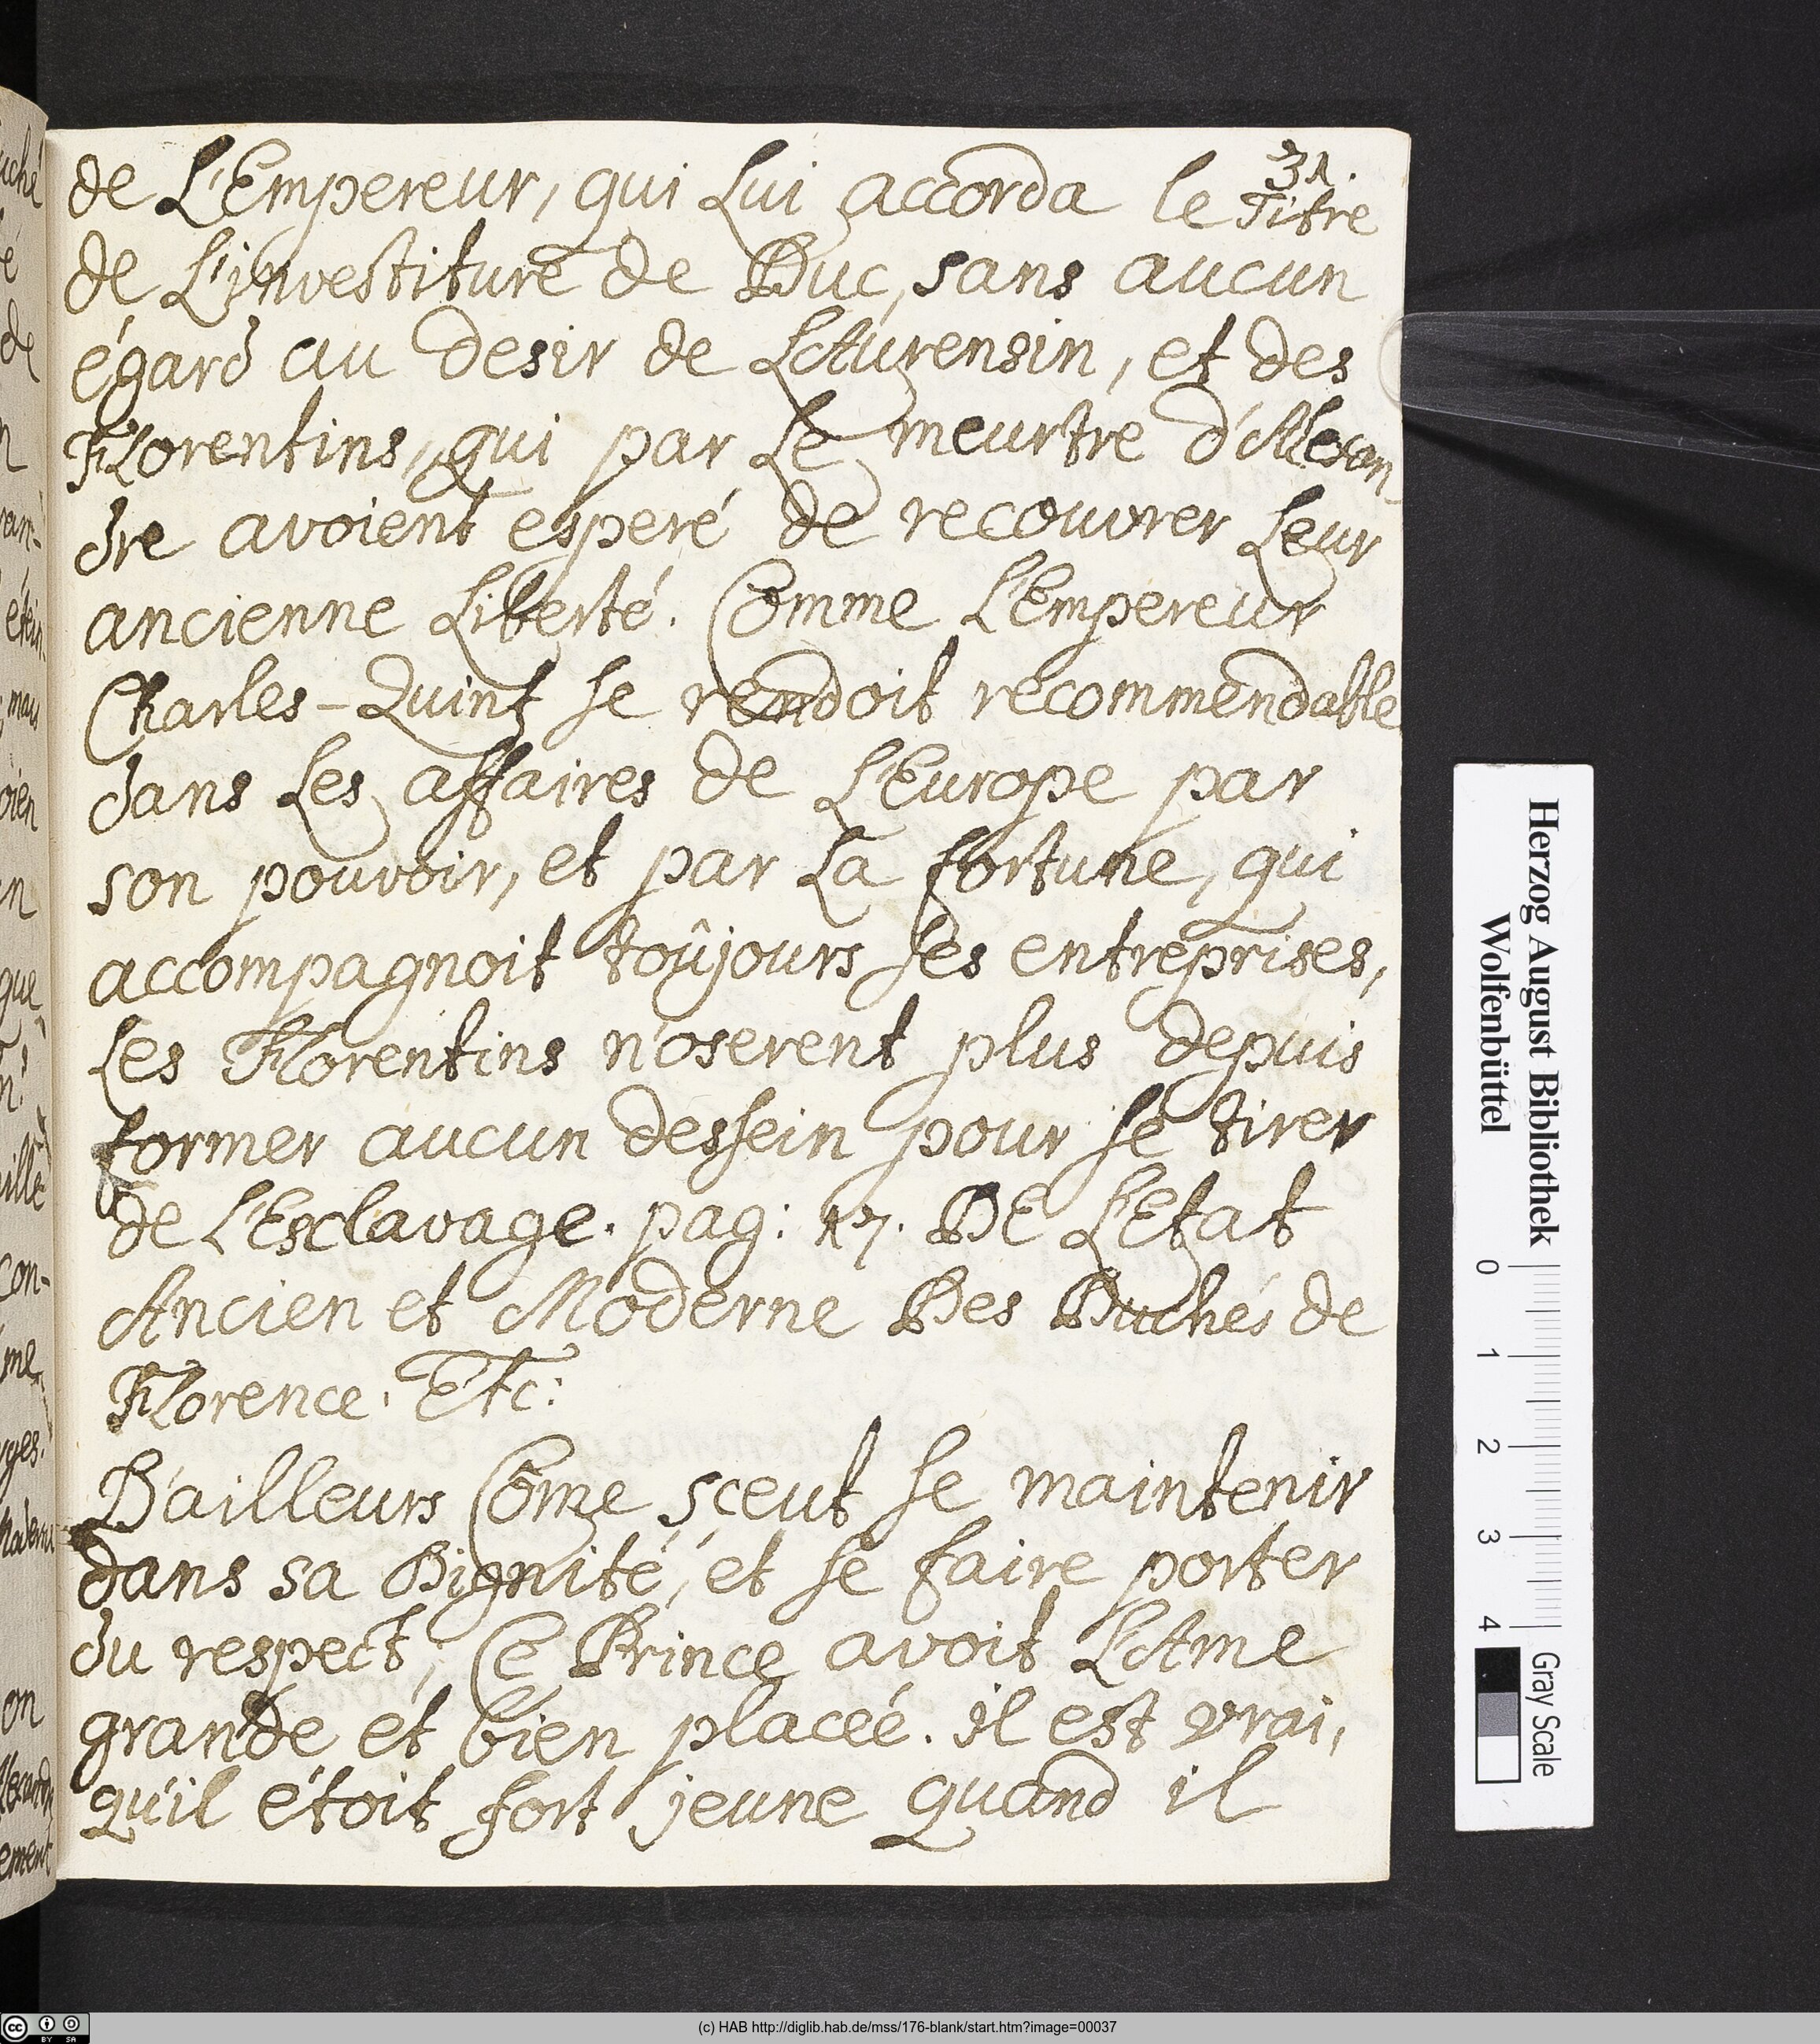 31.
de L'Empereur, qui Lui accorda le Titre
de L'investiture de Duc, sans aucun
égard au desir de LAurensin, et des
Florentins, qui par Le meurtre d'Alexan
dre avoient esperé de recouvrer Leur
ancienne Liberté. Comme L'Empereur
Charles-Quint se rendoit recommendable
dans Les affaires de L'Europe par
son pouvoir, et par La fortune, qui
accompagnoit toûjours ses entreprises,
Les Florentins n'oserent plus depuis
former aucun dessein pour se tirer
de L'Esclavage. pag: 17. DE L'Etat
Ancien et Moderne Des Duchés de
Florence. Etc:
D'ailleurs Côme sçeut se maintenir
dans sa Dignité, et se faire porter
du respect, Ce Prince avoit L'Ame
grande et bien placeé. il est vrai,
qu'il étoit fort jeune quand il
Herzog August Bibliothek
Wolfenbüttel
0 1 2 3 4
Gray Scale
(c) HAB http://diglib.hab.de/mss/176-blank/start.htm?image=00037
cc BY SA